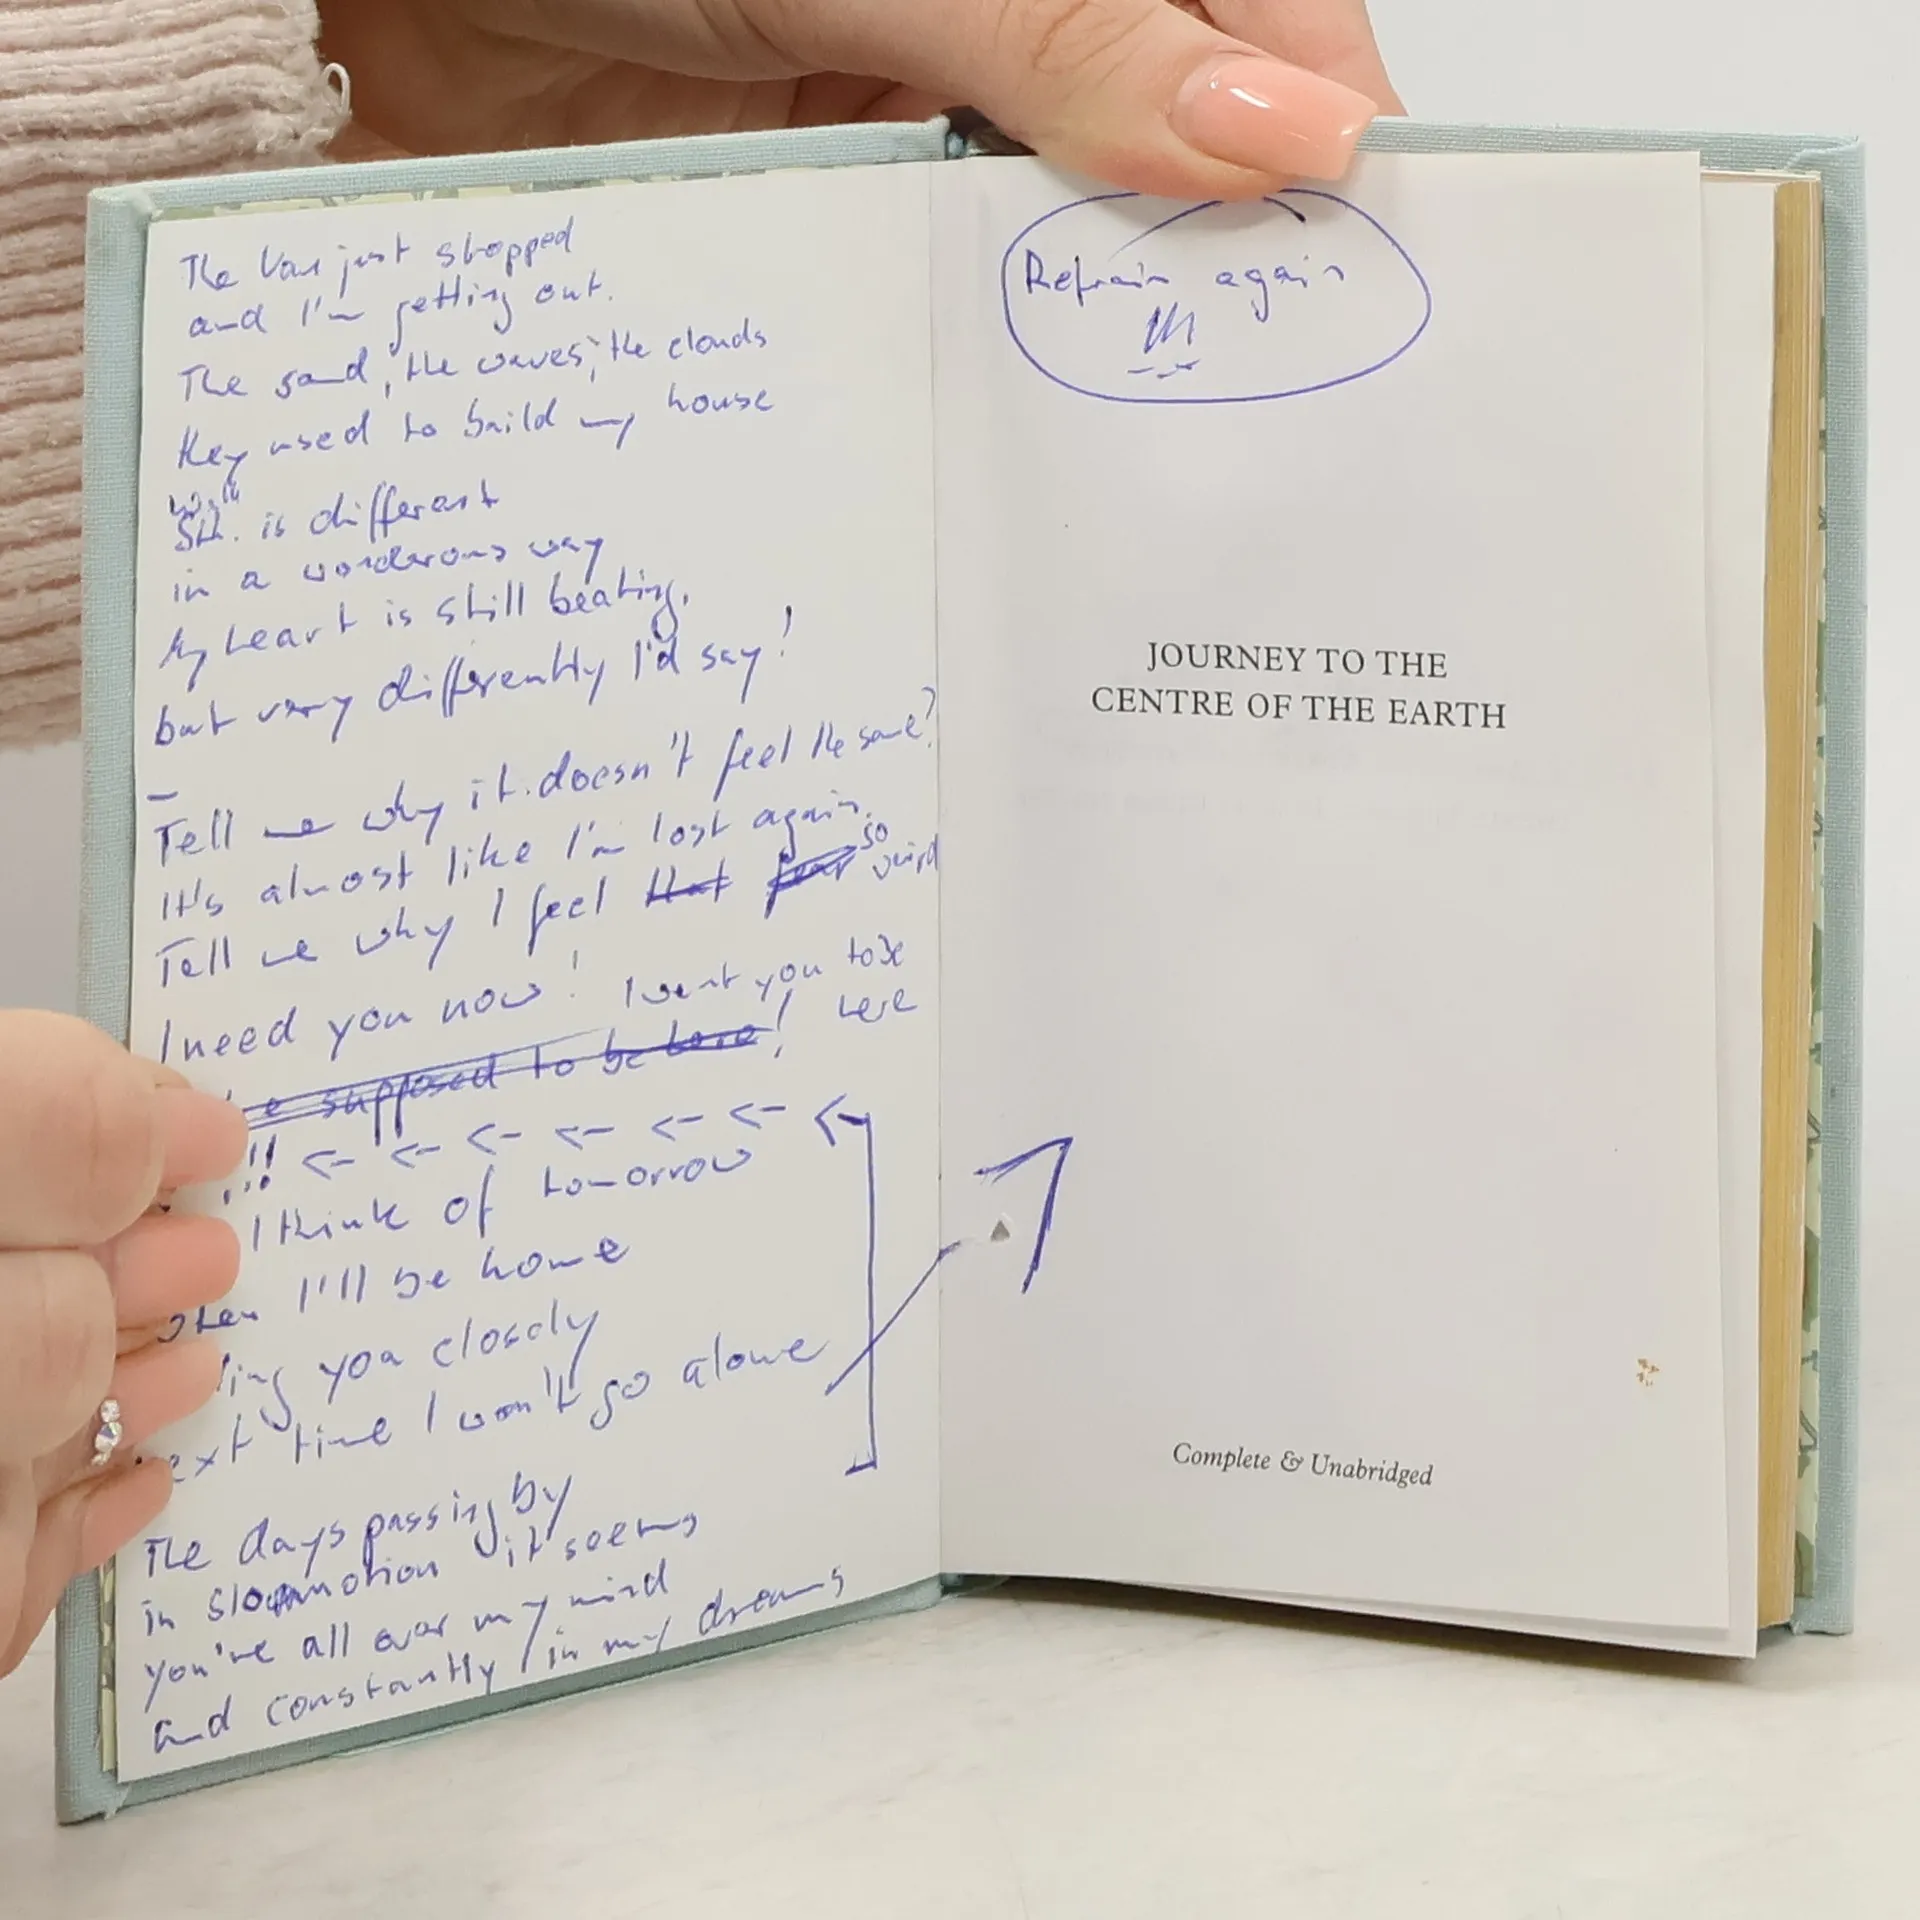 The Van just stopped
and I'm getting out.
The sand, the waves, the clouds
they used to build my house
Sth. is different
in a wonderous way
My heart is still beating,
but very differently I'd say!
Tell me why it doesn't feel the same?
It's almost like I'm lost again.
so
Tell me why I feel that fear weird
I need you now! I want you to be
here
supposed to be here!
!!! <- <- <- <- <- <- <-
I think of tomorrow
when I'll be home
you closely
next time I won't go alone
The days passing by
in slowmotion it seems
you're all over my mind
and constantly in my dreams
Refrain again
JOURNEY TO THE
CENTRE OF THE EARTH
Complete & Unabridged